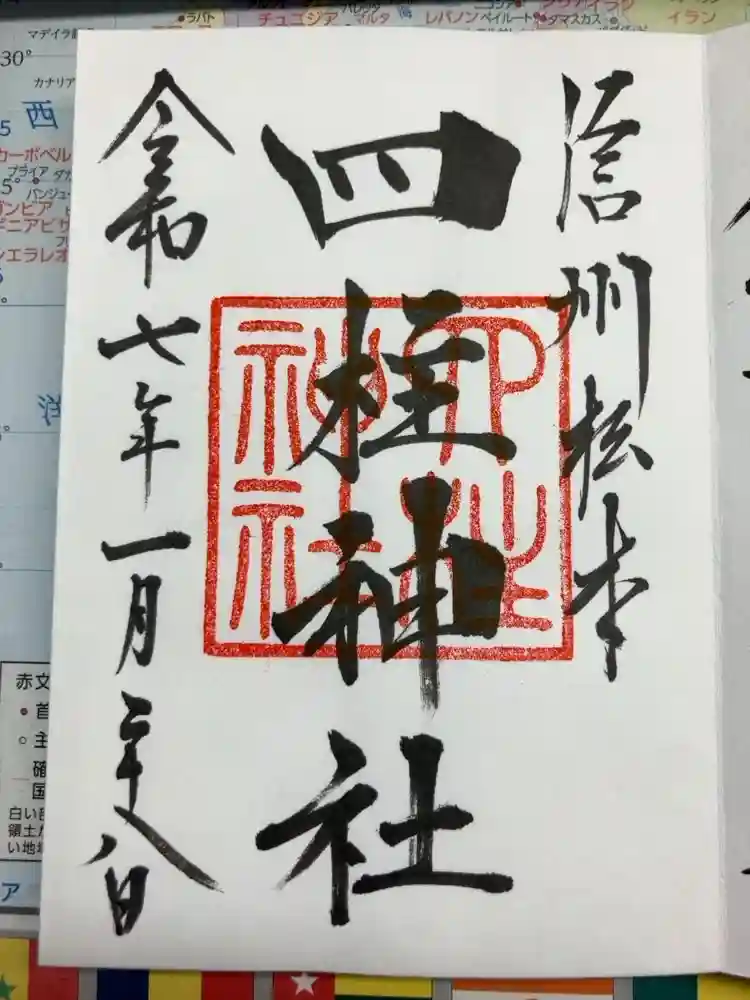 信州松本
四柱神社
令和七年一月二十八日
四柱
神社
ラバト
チュニジア
マルタ
レバノン
ベイルート
ダマスカス
イラン
マデイラ
30°
カナリア
西
カーボベル
プライア
バンジュー
ガンビア
ギニアビサ
シエラレオ
赤文
首
主
確
国
白い
領土
い地
ア